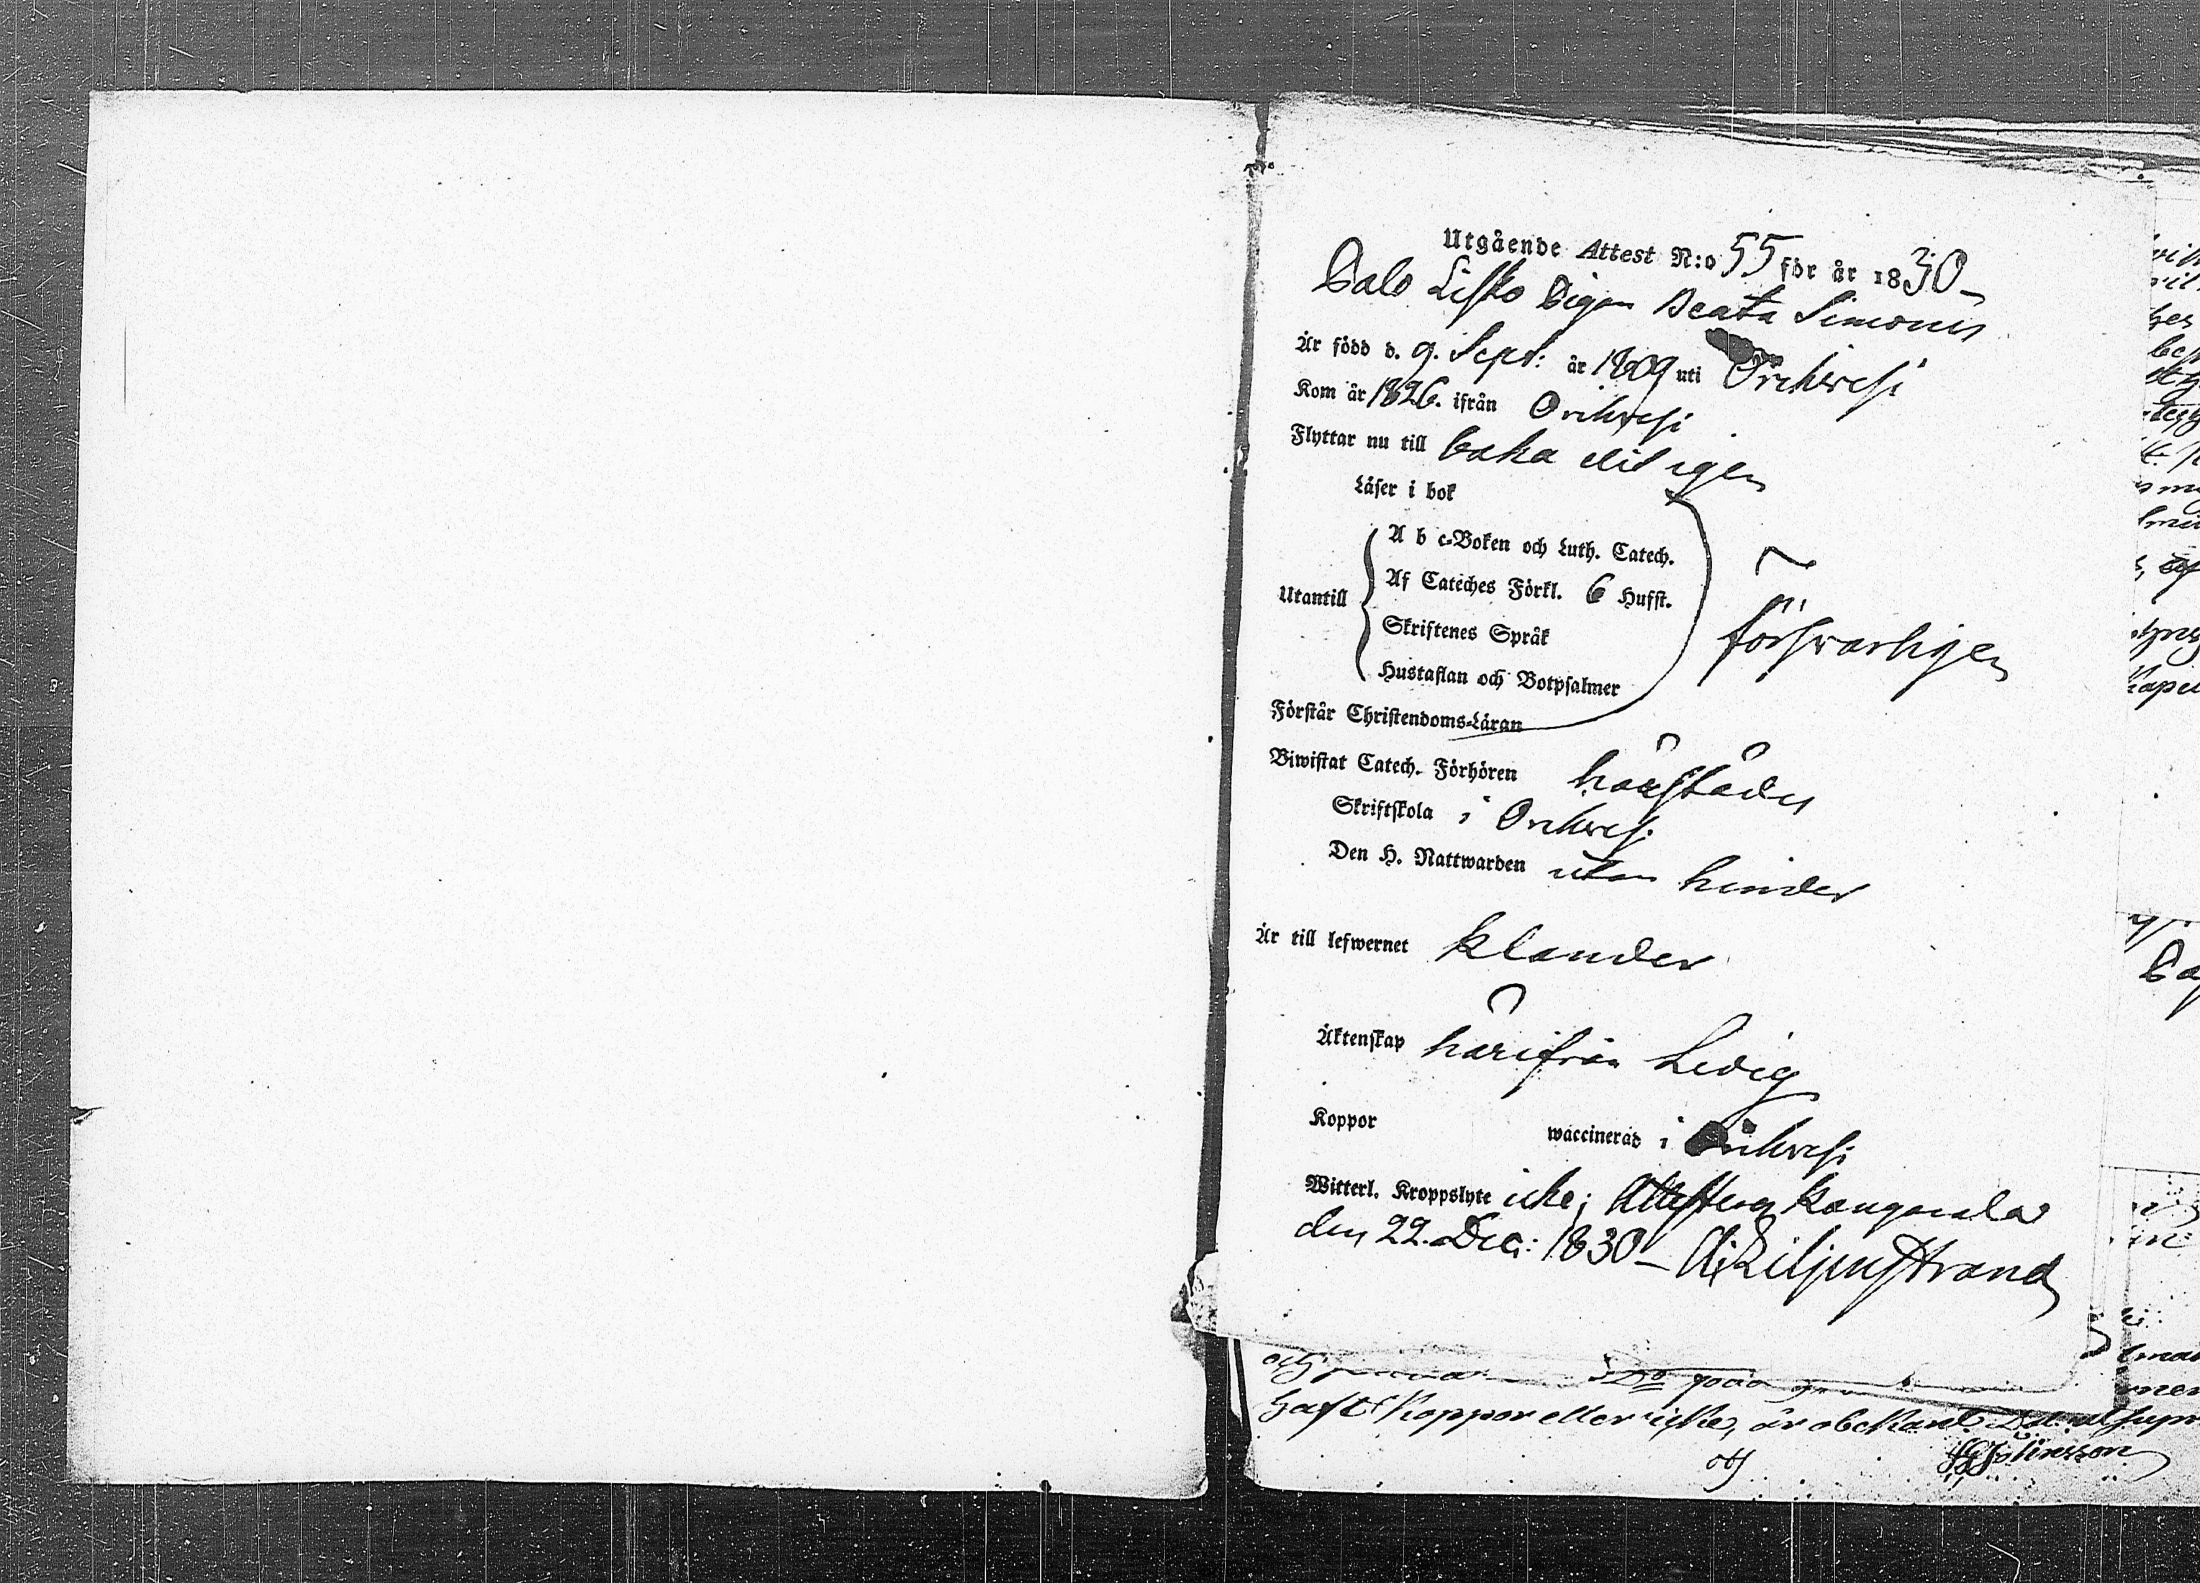 Utgående Attest N:o 55 för år 1830
Salo Lisko Pigan Beata Simonis
Är född d. 9. Sept: år 1809 uti Orihvesi
Kom år 1826. ifrån Orihvesi
Flyttar nu till baka dit igen
Läser i bok
A b c-Boken och Luth. Catech.
Af Cateches Förkl. 6 Hufst.
Utantill
Skriftenes Språk
Hustaflan och Botpsalmer
försvarligen
Förstår Christendoms-Läran
Biwistat Catech. Förhören härstädes
Skriftskola i Orihvesi
Den H. Nattwarden utan hinder
Är till lefwernet klander
Äktenskap härifrån Ledig
Koppor waccinerad i Orihvesi
Witterl. Kroppslyte icke; Attesterar Kangasala
den 22. Dec: 1830 – A: Liljenstrand
haft Koppor eller icke, är obekant. Dat. ut supr